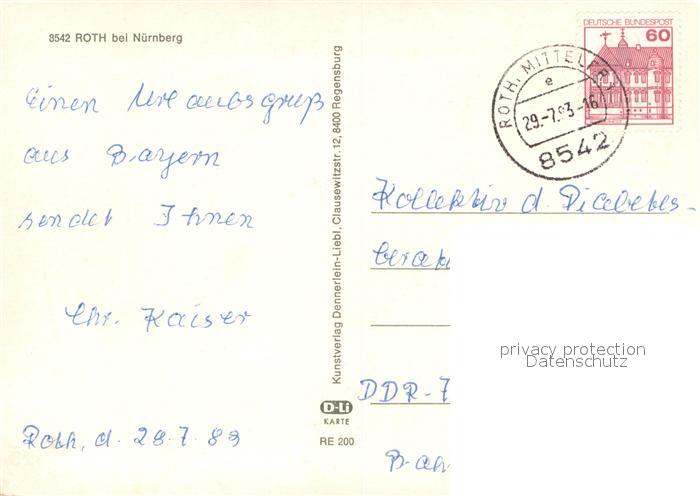 8542 ROTH bei Nürnberg
Einen Urlaubsgruß
aus Bayern
sendet Ihnen
Chr. Kaiser
Roth, d. 28.7.83
Kunstverlag Dennerlein-Liebl, Clausewitzstr. 12, 8400 Regensburg
D-Li
KARTE
RE 200
DEUTSCHE BUNDESPOST
60
ROTH, MITTELFR
e
29.-7.83-16
8542
Kollektiv d. Diabetes-
DDR-7
privacy protection
Datenschutz